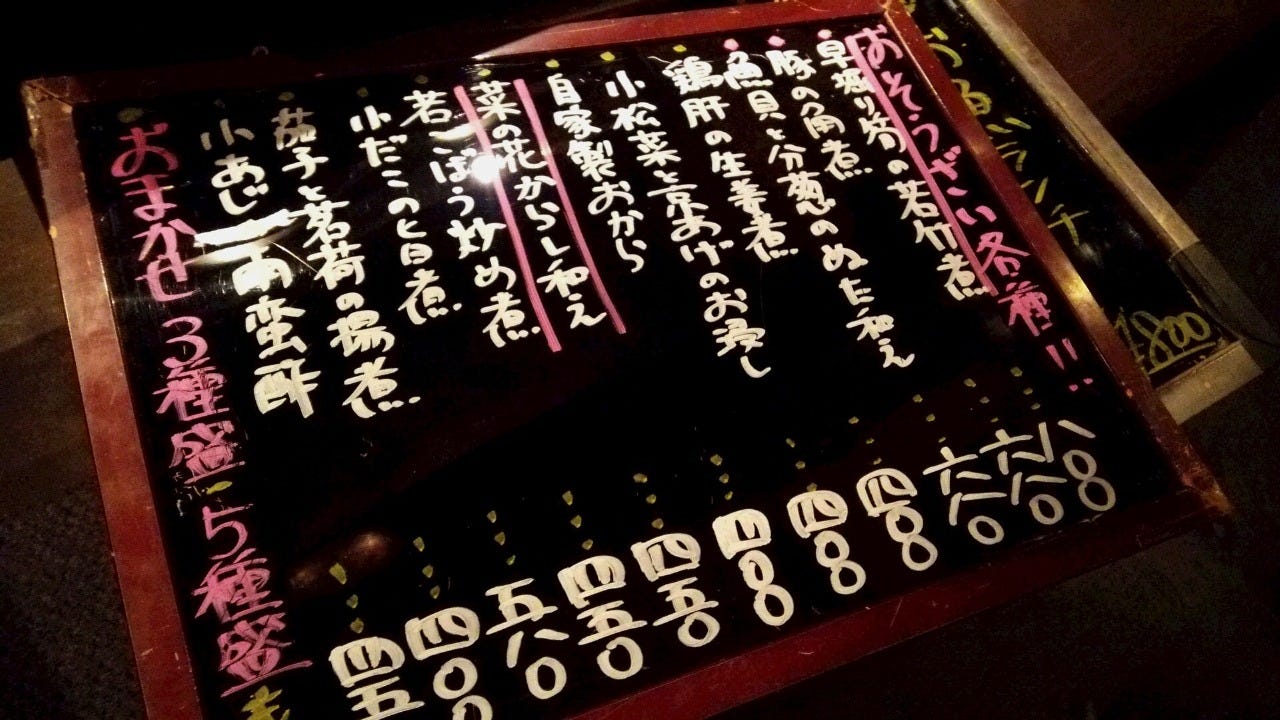 ¥800
おそうざい各種!!
早掘り筍の若竹煮……八〇〇
豚の角煮……六八〇
魚貝と分葱のぬた和え……六八〇
鶏肝の生姜煮
小松菜と京あげのお浸し
自家製おから
菜の花からし和え……四五〇
若ごぼう炒め煮……四五〇
小だこのと日煮……五八〇
茄子と茗荷の揚煮……四〇〇
小あじ南蛮酢……四五
おまかせ 3種盛・5種盛